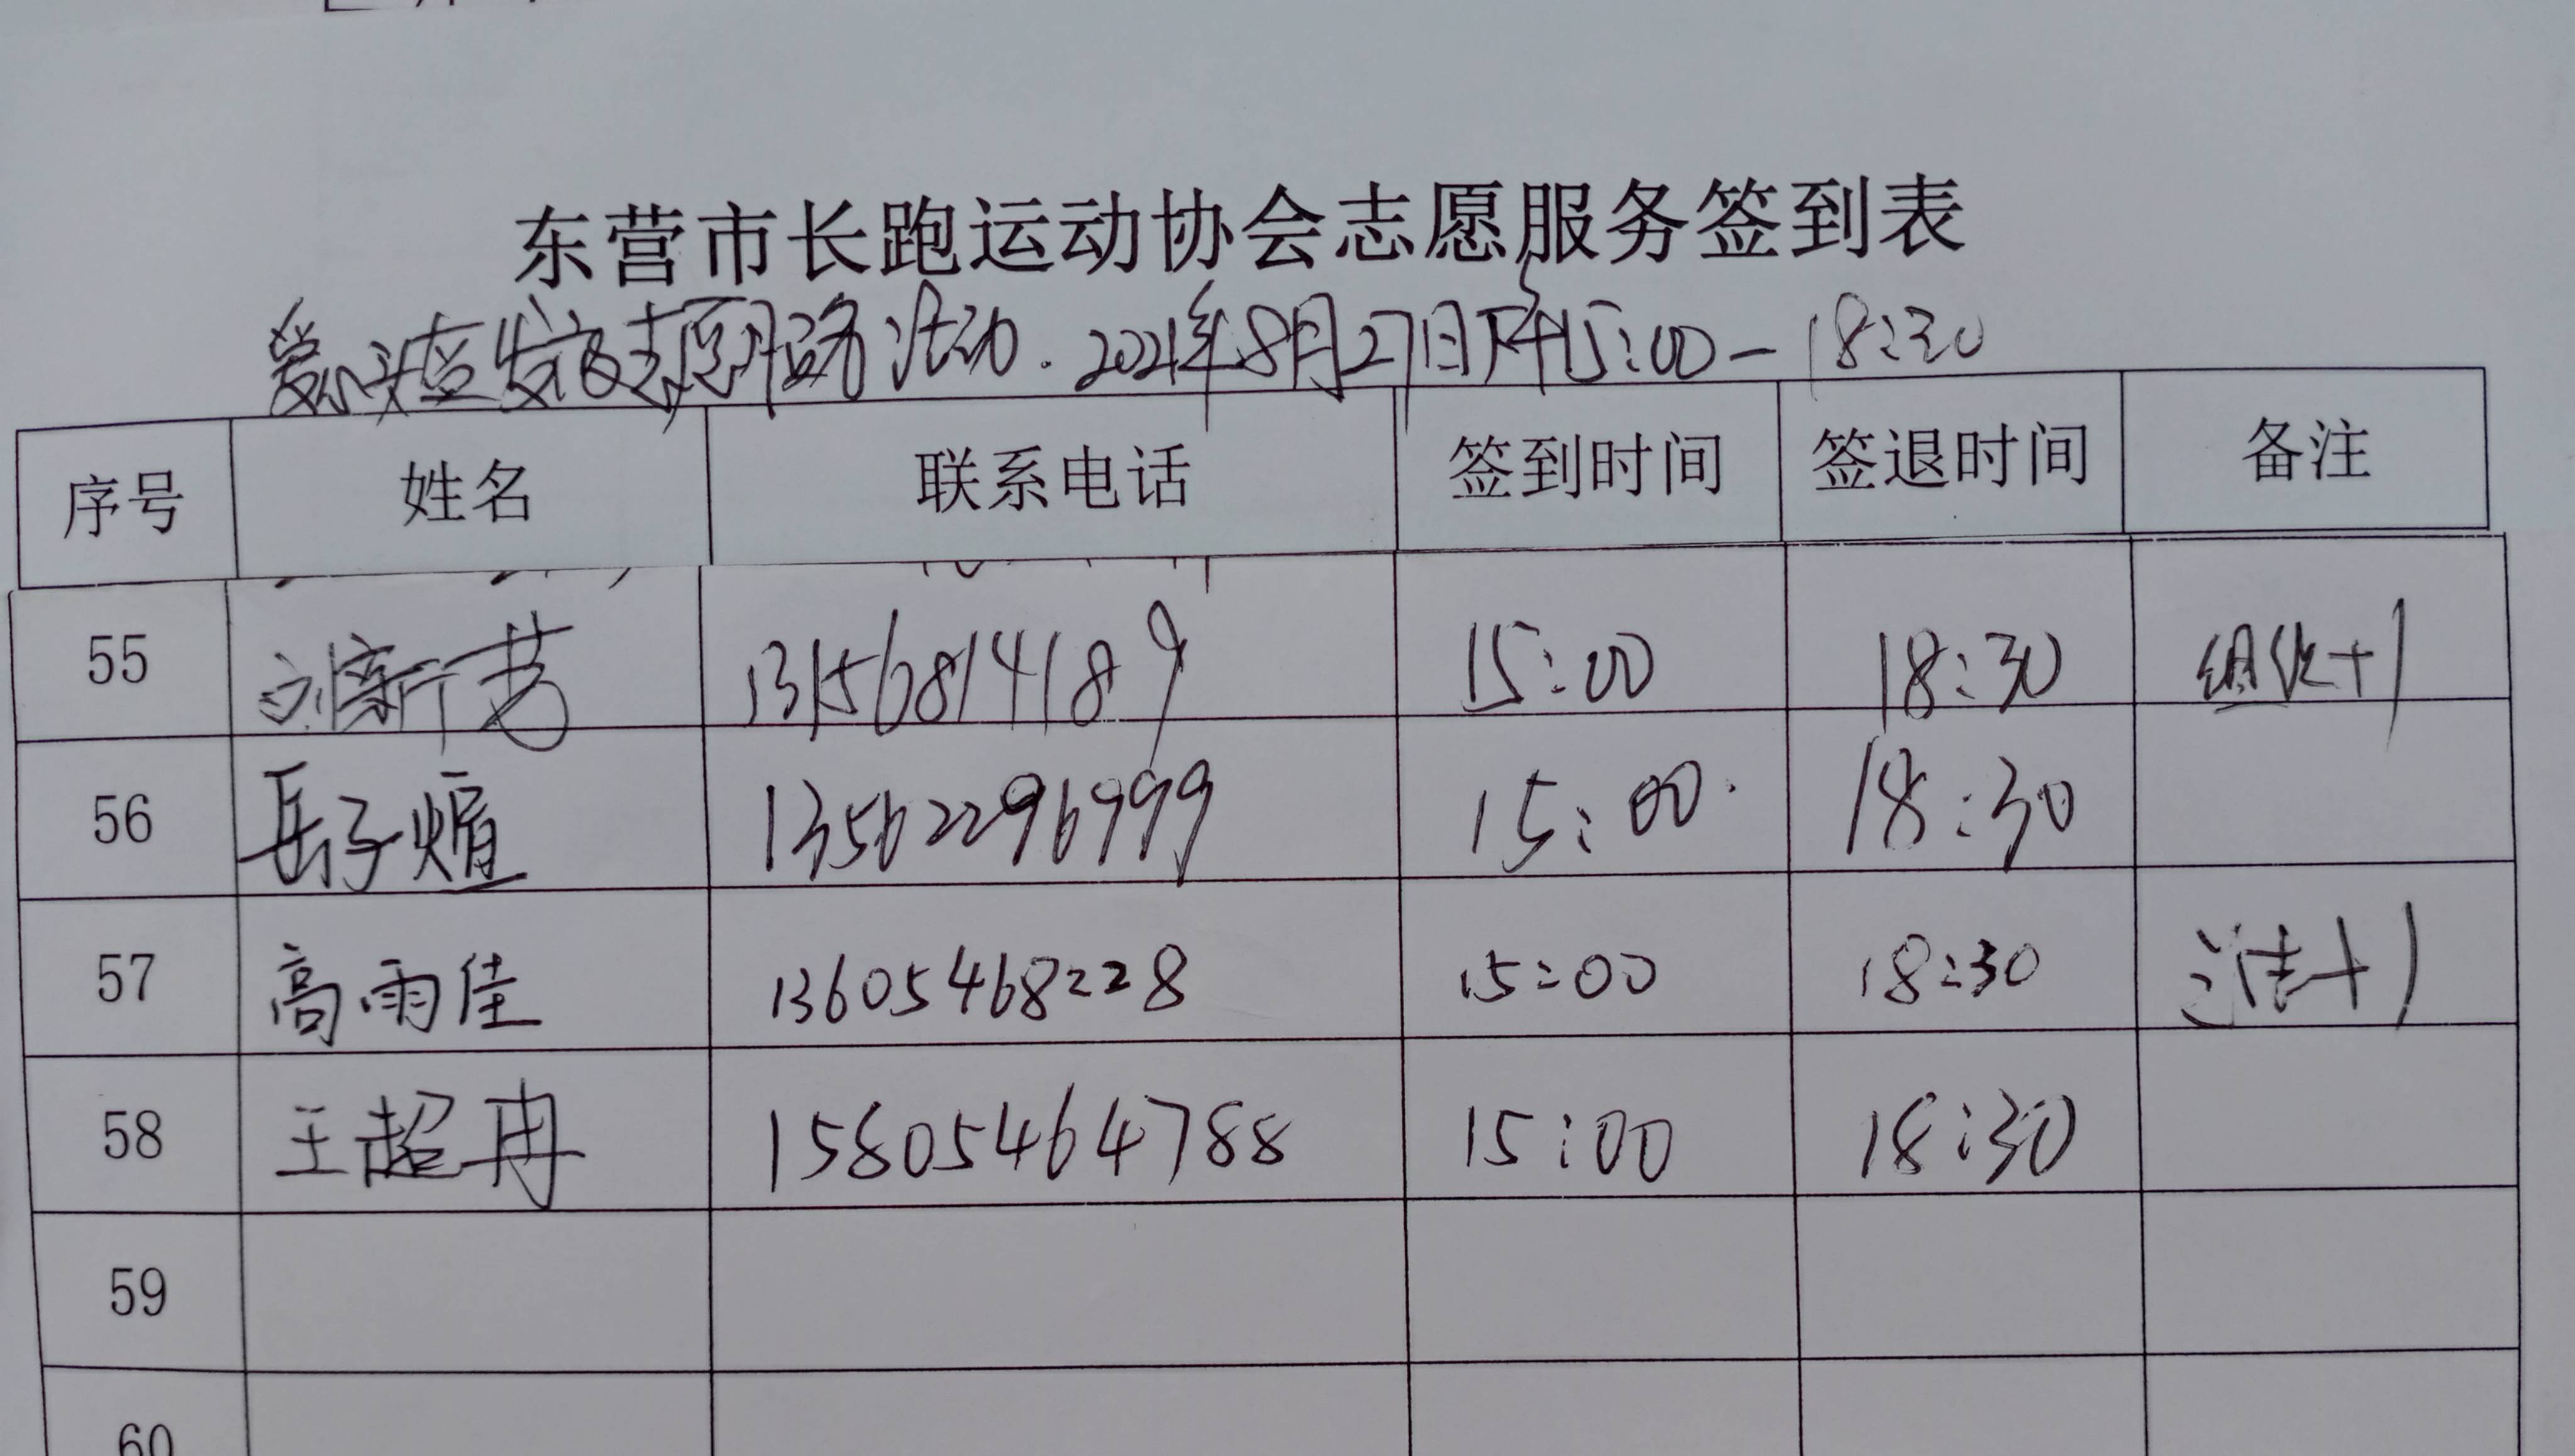 东营市长跑运动协会志愿服务签到表
爱心 发放志愿服务活动.2021年8月27日下午15:00-18:30
序号 姓名 联系电话 签到时间 签退时间 备注
55 刘新芳 13156814189 15:00 18:30 组织+1
56 岳子煊 13562296999 15:00 18:30
57 高雨佳 13605468228 15:00 18:30 +1
58 王超冉 15805464788 15:00 18:30
59
60